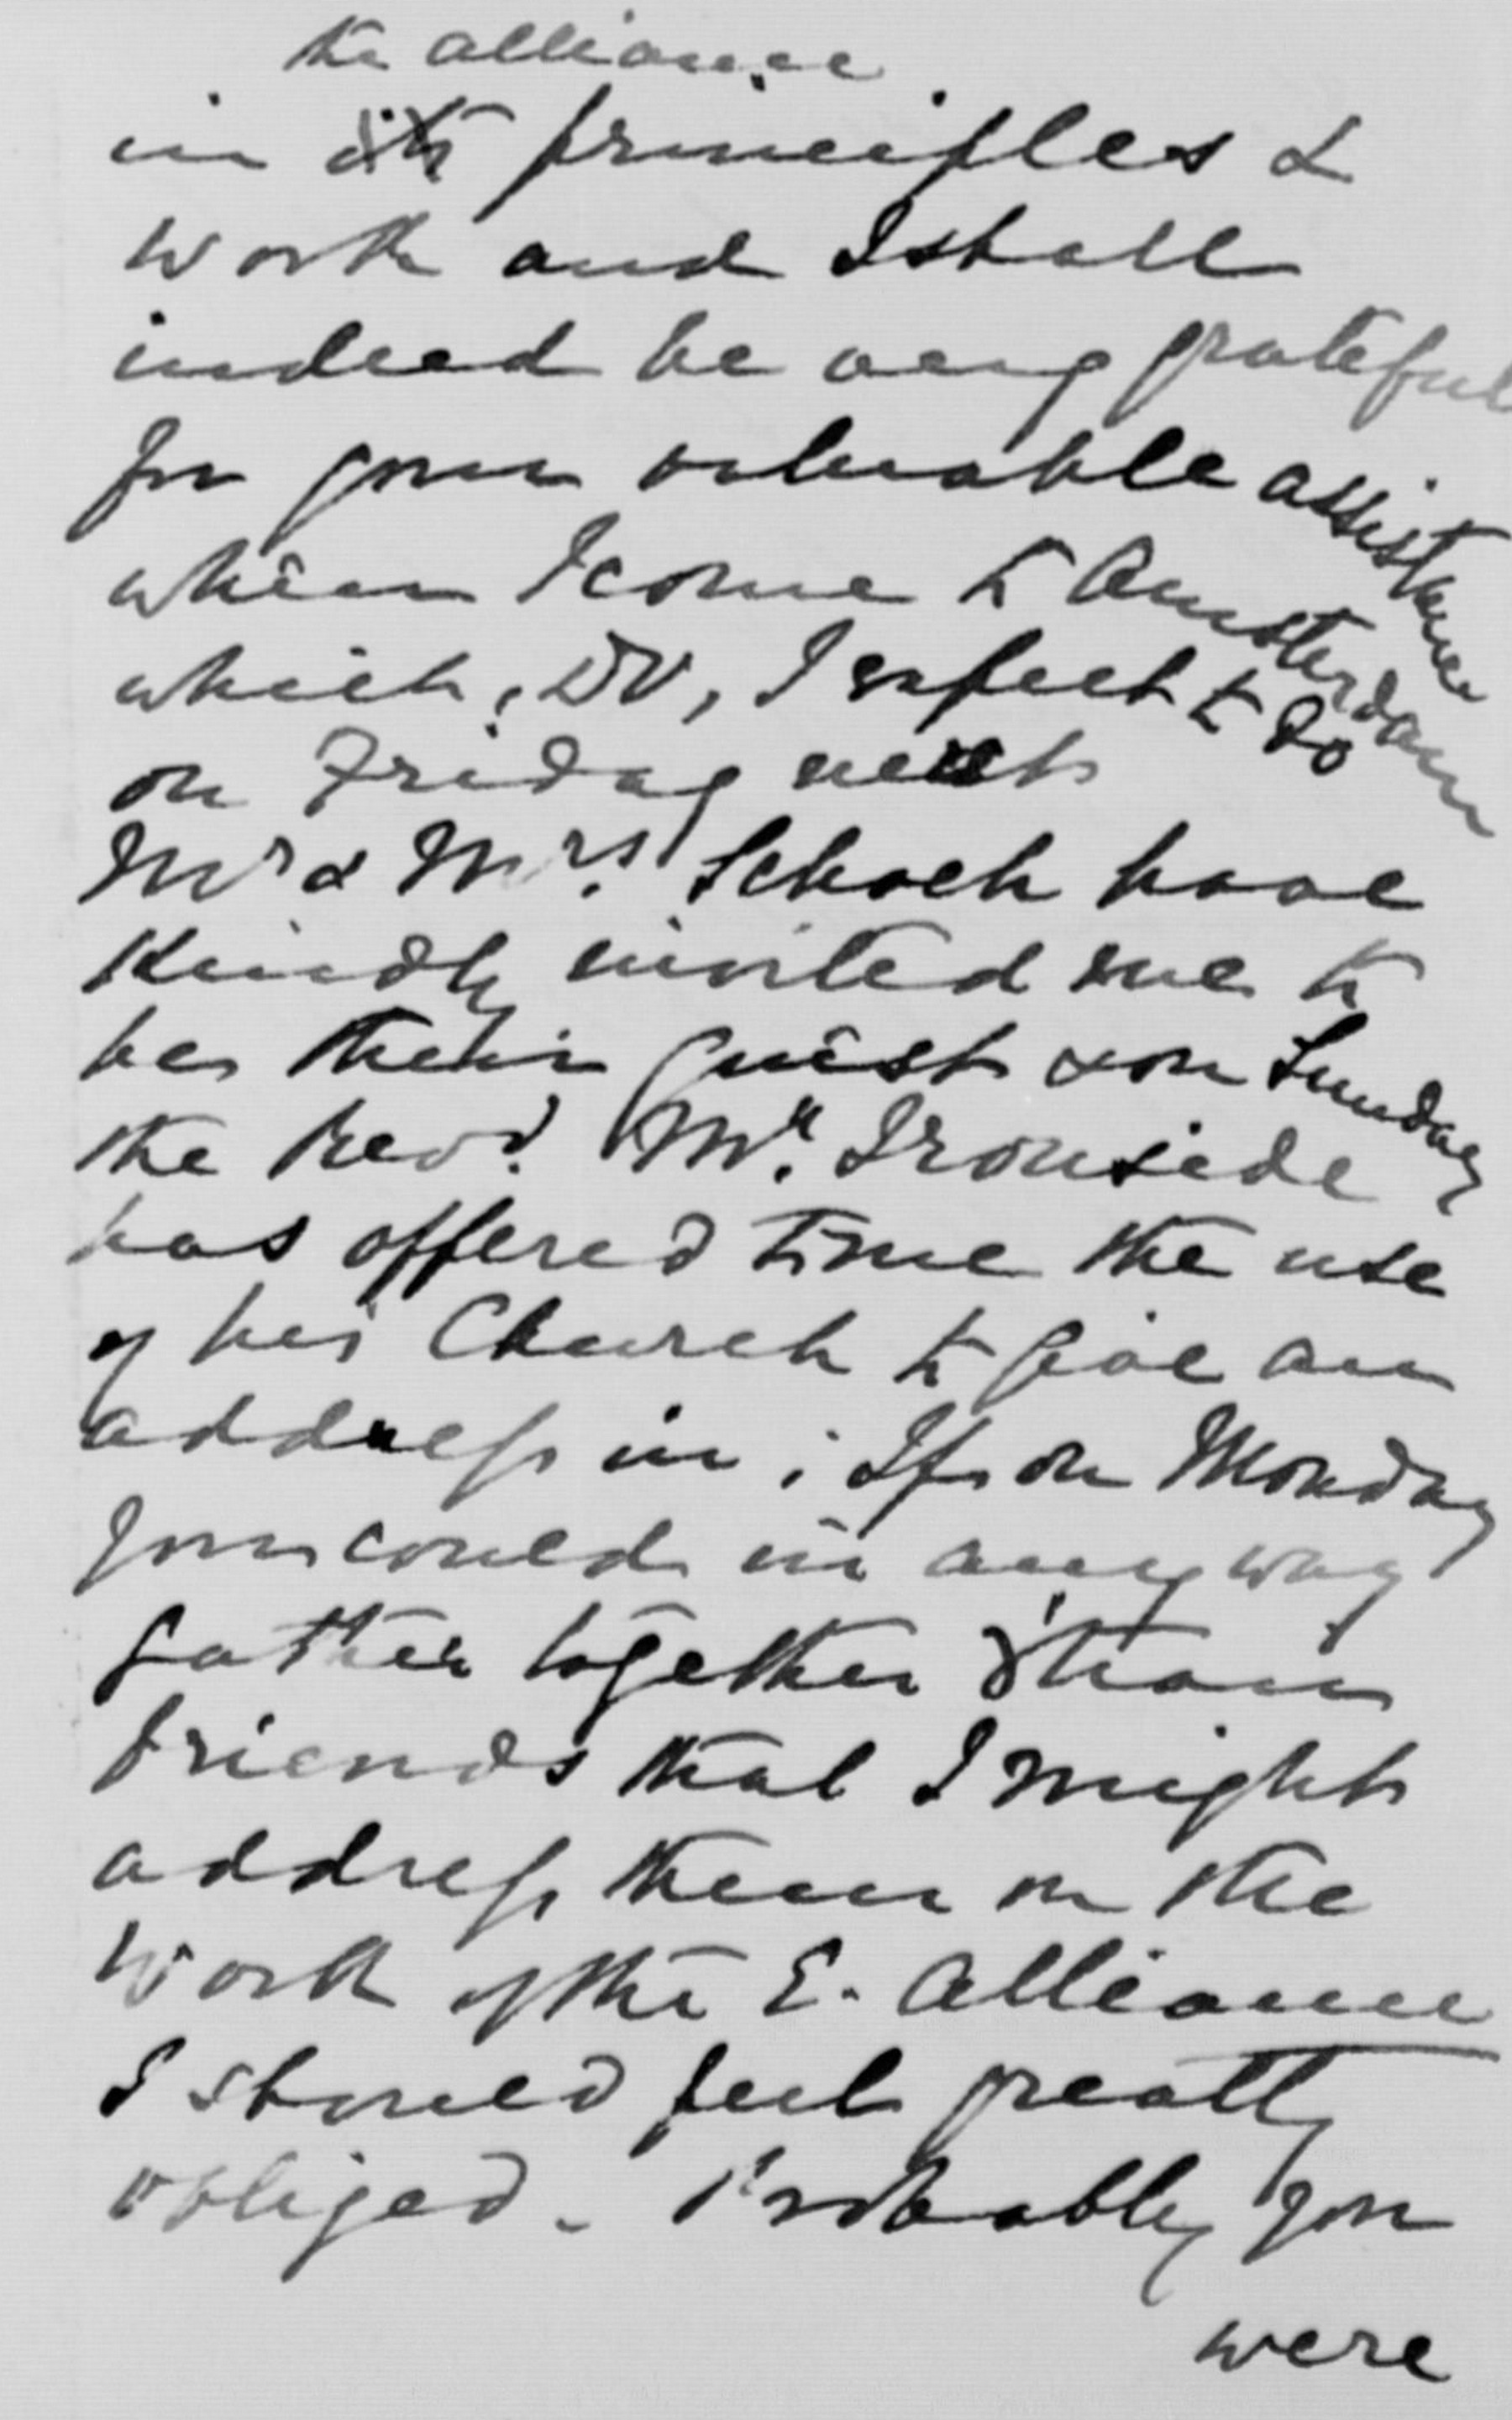 the alliance
in its principles &
work and I shall
indeed be very grateful
for your valuable assistance
when I come to Amsterdam
which, DV, I expect to do
on Friday next
Mr & Mrs. Schoch have
kindly invited me to
be their guest & on Sunday
the Revd. Mr. Ironside
has offered to me the use
of his Church to give an
address in; If on Monday
you could in any way
gather together
friends that I might
address them on the
work of the E. Alliance
I should feel greatly
obliged. Probably you
were